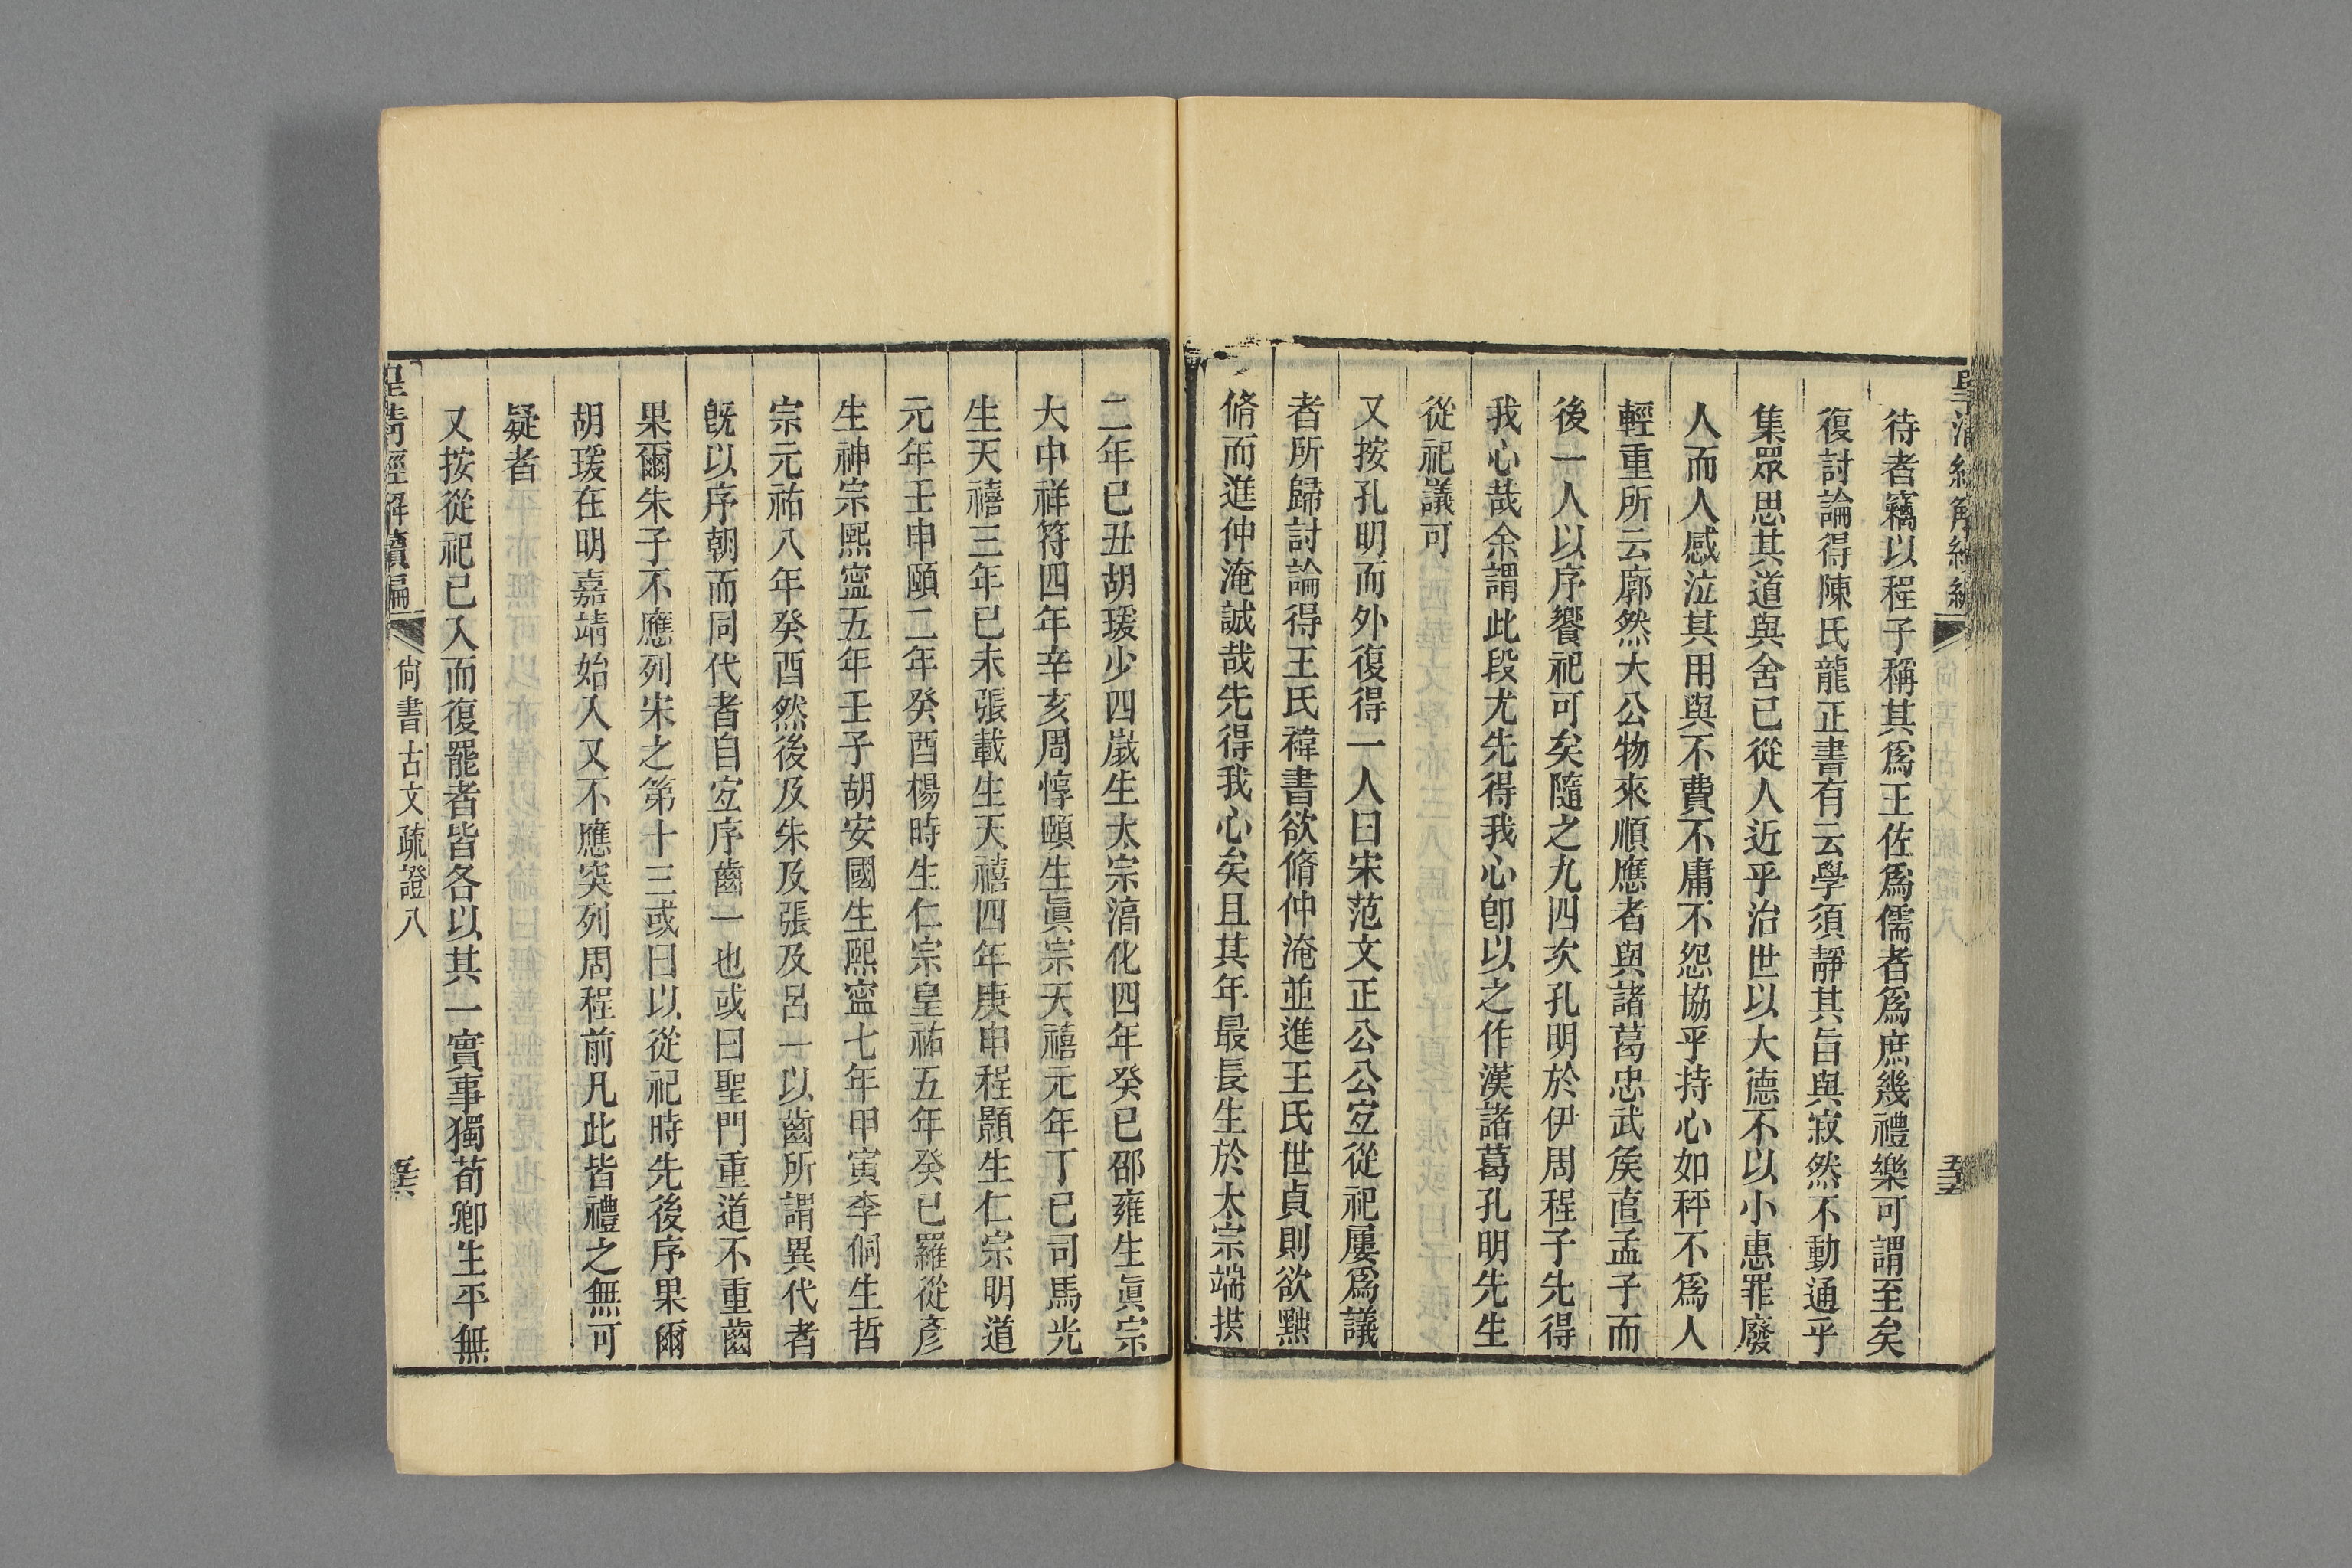 待者竊以程子稱其爲王佐爲儒者爲庶幾禮樂可謂至矣
復討論得陳氏龍正書有云學須靜其旨與寂然不動通乎
集眾思其道與舍己從人近乎治世以大德不以小惠罪廢
人而人感泣其用與不費不庸不怨協乎持心如秤不爲人
輕重所云廓然大公物來順應者與諸葛忠武矦直孟子而
後一人以序饗祀可矣隨之九四次孔明於伊周程子先得
我心哉余謂此段尤先得我心卽以之作漢諸葛孔明先生
從祀議可
又按孔明而外復得一人曰宋范文正公公宐從祀屢爲議
者所歸討論得王氏禕書欲脩仲淹並進王氏世貞則欲黜
脩而進仲淹誠哉先得我心矣且其年最長生於太宗端拱
二年已丑胡瑗少四歲生太宗淳化四年癸巳邵雍生眞宗
大中祥符四年辛亥周惇頤生眞宗天禧元年丁巳司馬光
生天禧三年已未張載生天禧四年庚申程顥生仁宗明道
元年壬申頤二年癸酉楊時生仁宗皇祐五年癸巳羅從彥
生神宗熙寍五年壬子胡安國生熙寍七年甲寅李侗生哲
宗元祐八年癸酉然後及朱及張及呂一以齒所謂異代者
旣以序朝而同代者自宐序齒一也或曰聖門重道不重齒
果爾朱子不應列宋之第十三或曰以從祀時先後序果爾
胡瑗在明嘉靖始入又不應突列周程前凡此皆禮之無可
疑者
又按從祀已入而復罷者皆各以其一實事獨荀卿生平無
皇清經解續編
尙書古文疏證八